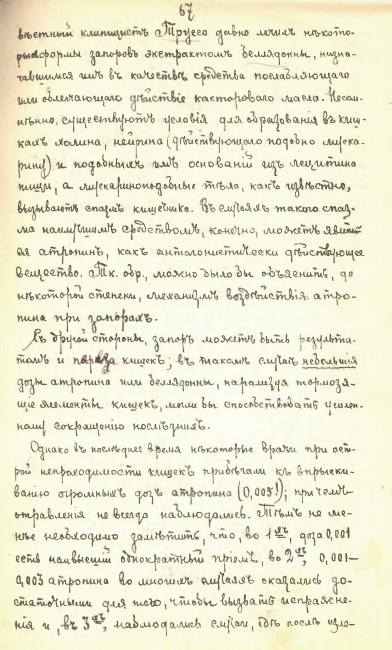 67
вѣстный клиницистъ Труссо давно лечилъ нѣкото-
рыя формы запоровъ экстрактомъ белладонны, назна-
чавшимся имъ въ качествѣ средства послабляющаго
или облегчающаго дѣйствіе кастороваго масла. Несом-
нѣнно, существуютъ условія для образованія въ киш-
кахъ холина, нейрина (дѣйствующаго подобно муска-
рину) и подобныхъ имъ основаній изъ лецитина
пищи, а мускариноподобныя тѣла, какъ извѣстно,
вызываютъ спазмъ кишечника. Въ случаяхъ такого спаз-
ма наилучшимъ средствомъ, конечно, можетъ явить-
ся атропинъ, какъ антагонистически дѣйствующее
вещество. Тк. обр., можно было бы объяснить, до
нѣкоторой степени, механизмъ воздѣйствія атро-
пина при запорахъ.
Съ другой стороны, запоръ можетъ быть результа-
томъ и пареза кишекъ; въ такомъ случаѣ небольшія
дозы атропина или белладонны, парализуя тормозя-
щіе элементы кишекъ, могли бы способствовать усилен-
ному сокращенію послѣднихъ.
Однако въ послѣднее время нѣкоторые врачи при ост-
рой непроходимости кишекъ прибѣгали къ впрыски-
ванію огромныхъ дозъ атропина (0,005!); при чемъ
отравленія не всегда наблюдались. Тѣмъ не ме-
нѣе необходимо замѣтить, что, во 1хъ, доза 0,001
есть наивысшій однократный пріемъ, во 2хъ, 0,001—
0,003 атропина во многихъ случаяхъ оказались до-
статочными для того, чтобы вызвать испражне-
нія и, въ 3хъ, наблюдались случаи, гдѣ послѣ